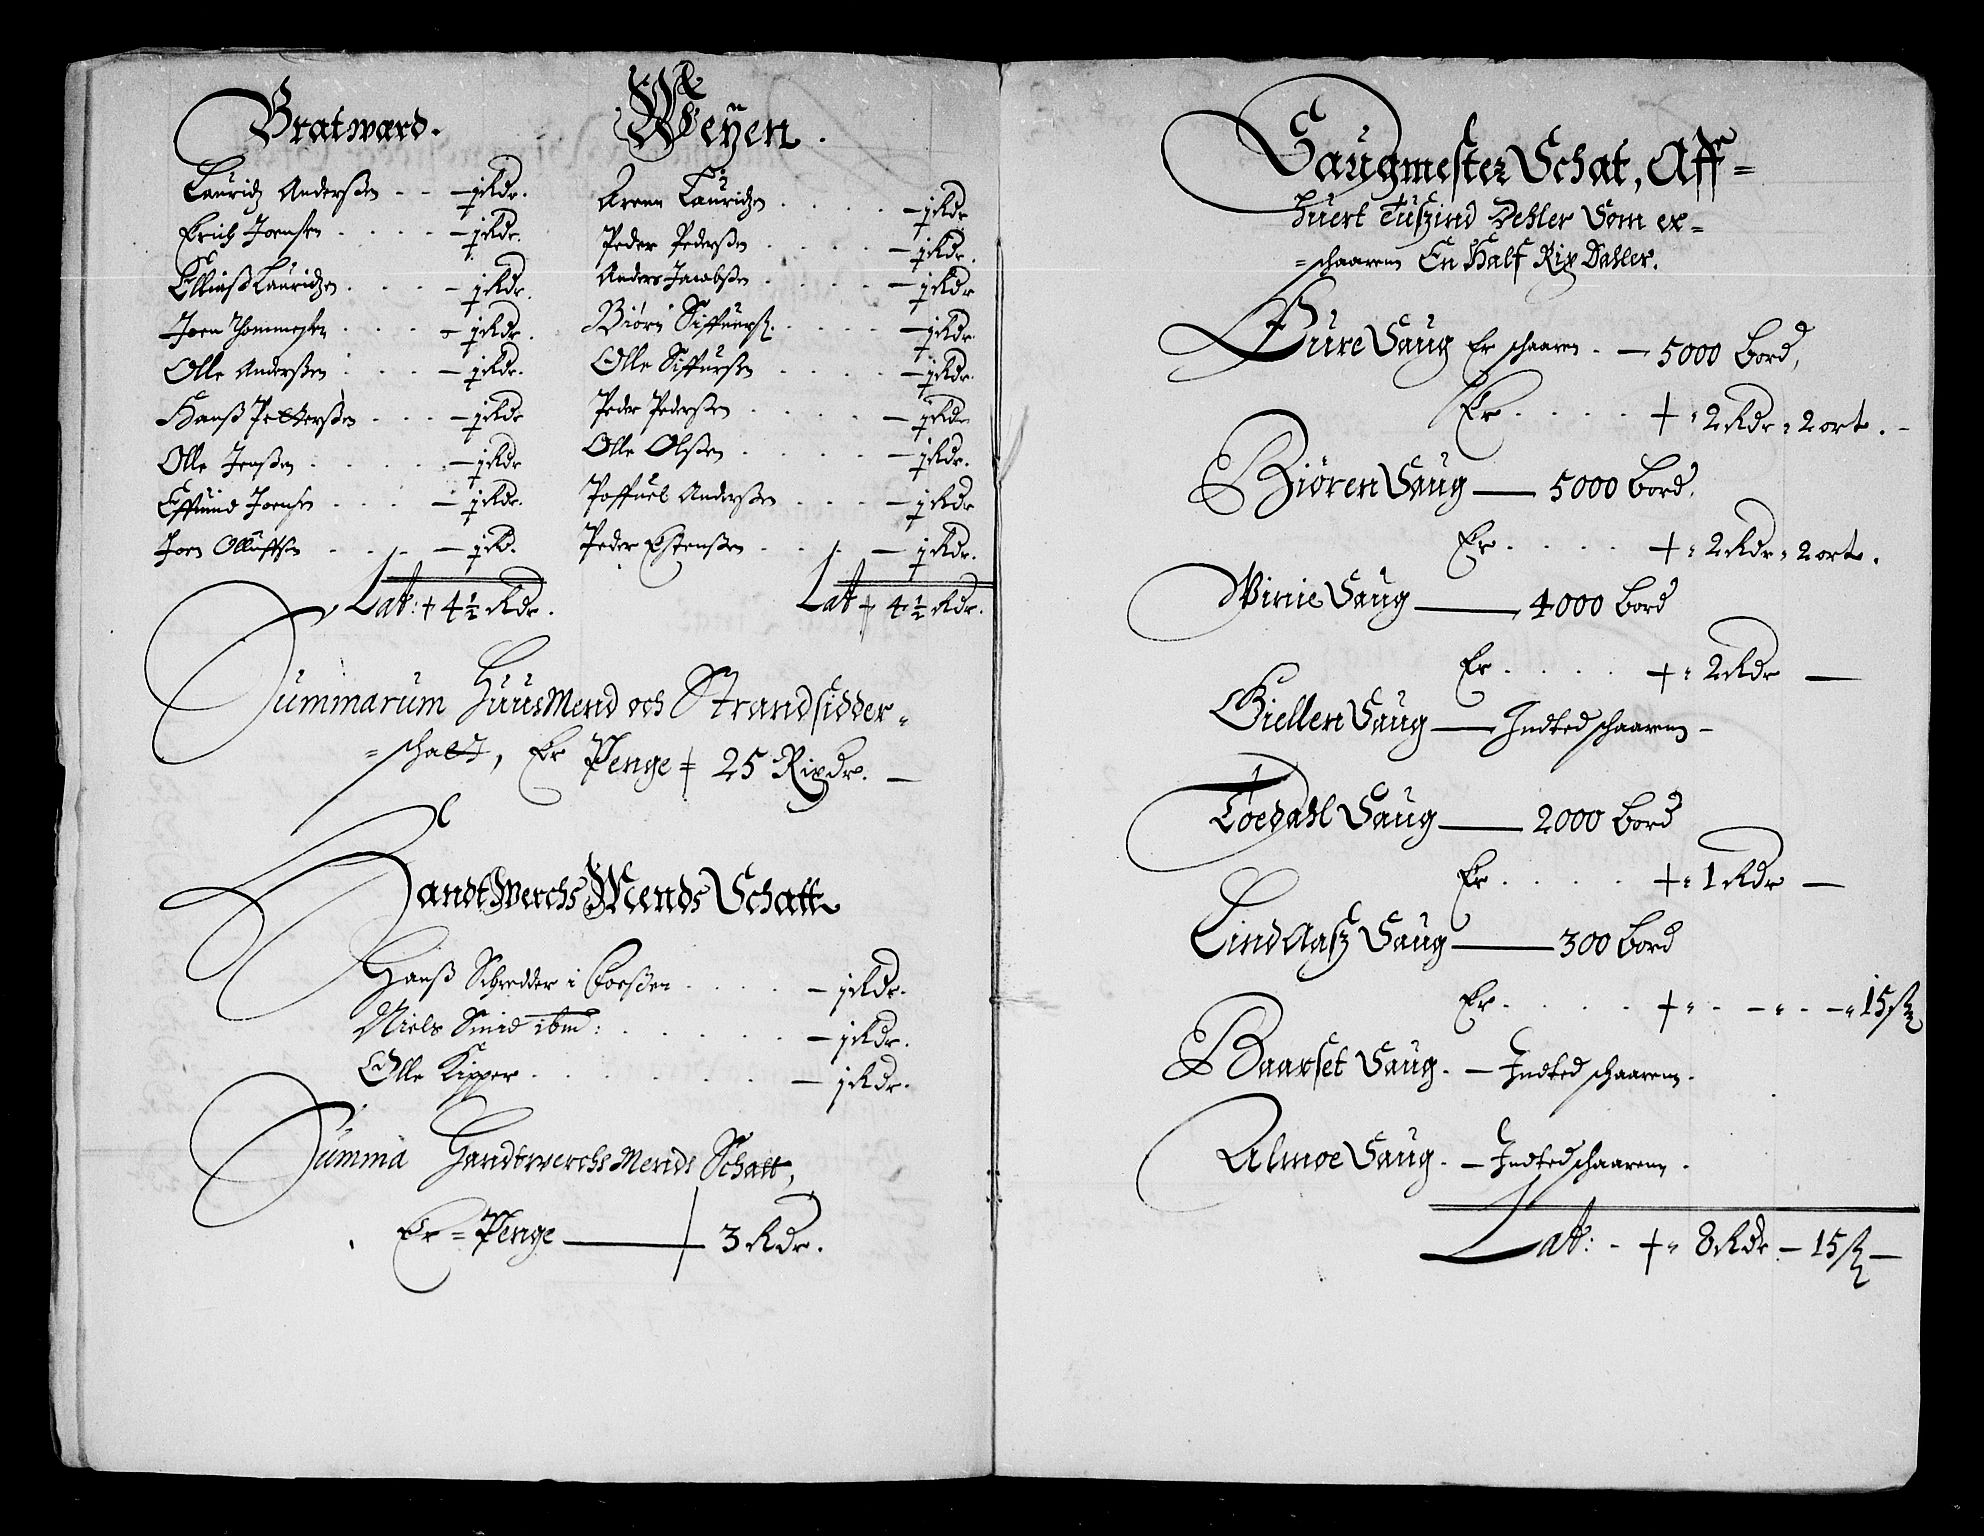 Bratwærd.
Lauridz Anderßen - - - ½ Rdr.
Erich Joensen - ½ Rdr.
Elliaß Lauridzen - ½ Rdr.
Joen Thommesen - ½ Rdr.
Olle Anderßen - ½ Rdr.
Hanß Petterßen - ½ Rdr
Olle Jenßen - ½ Rdr
Joensen - ½ Rdr.
Joen Olluffsen - ½ Rd.
Lat: + 4½ Rdr.
Weÿen.
Arenn Lauridzen - ½ Rdr
Peder Pederßen - ½ Rdr.
Anders Jacobßen - ½ Rdr
Biörn Siffuerß. - ½ Rdr
Olle Siffurßen - ½ Rdr.
Peder Pederßen - ½ Rdr
Olle Olßen - ½ Rdr.
Poffuel Anderßen - ½ Rdr
Peder Estenßen - ½ Rdr.
Lat + 4½ Rdr.
Summarum HuusMend och Strandsidder=
=schatt, Er Penge + 25 Rixdr. —
HandtwerchsMends Schatt
Hanß Schredder i - 1 Rdr.
Niels Smid ibm: - 1 Rdr.
Olle Kipper - 1 Rdr.
Summa Handtwerchs Mends Schatt,
Er = Penge — + 3 Rdr.
Saugmester Schat, Aff=
huert Tuszind Dehler Som ex=
=schaarenn En Half Rix Daller.
Eure Saug Er schaaren - — 5000 bord,
Er . . . . + " 2 Rdr " 2 ort. -
Biören Saug — 5000 bord.
Er . . . . + " 2 Rdr " 2 ort.
Vinie Saug — 4000 bord
Er . . . . + " 2 Rdr —
Giellen Saug — Indted schaarenn -
Töedahl Saug — 2000 bord
Er . . . . + " 1 Rdr —
Lind Aasz Saug — 300 bord
Er . . . . + " - — " - — " 15 ß
Baarset Saug. — Indted schaarenn.
Almoe Saug. — Indted schaarenn.
Lat: - + " 8 Rdr — 15 ß —